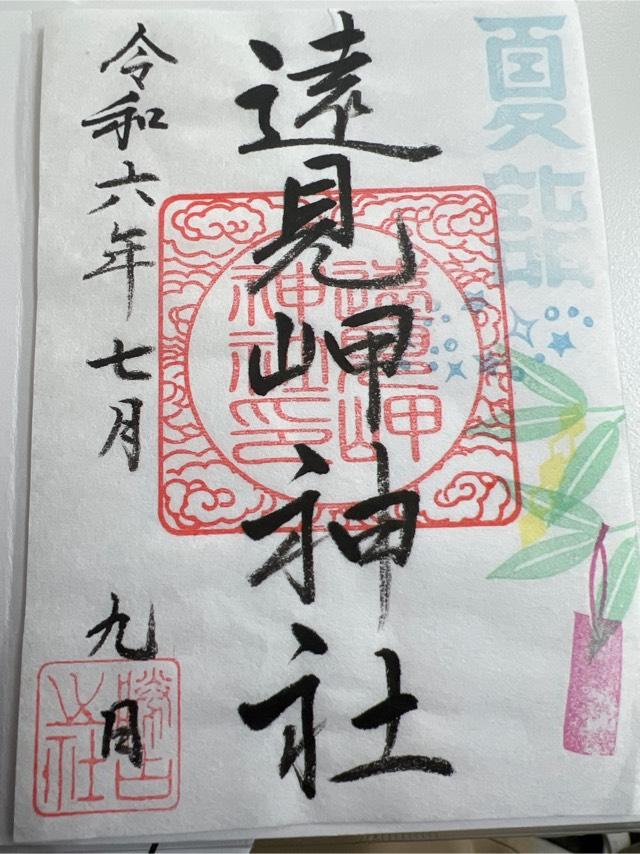 夏詣
遠見岬神社
遠見岬
神社印
令和六年七月九日